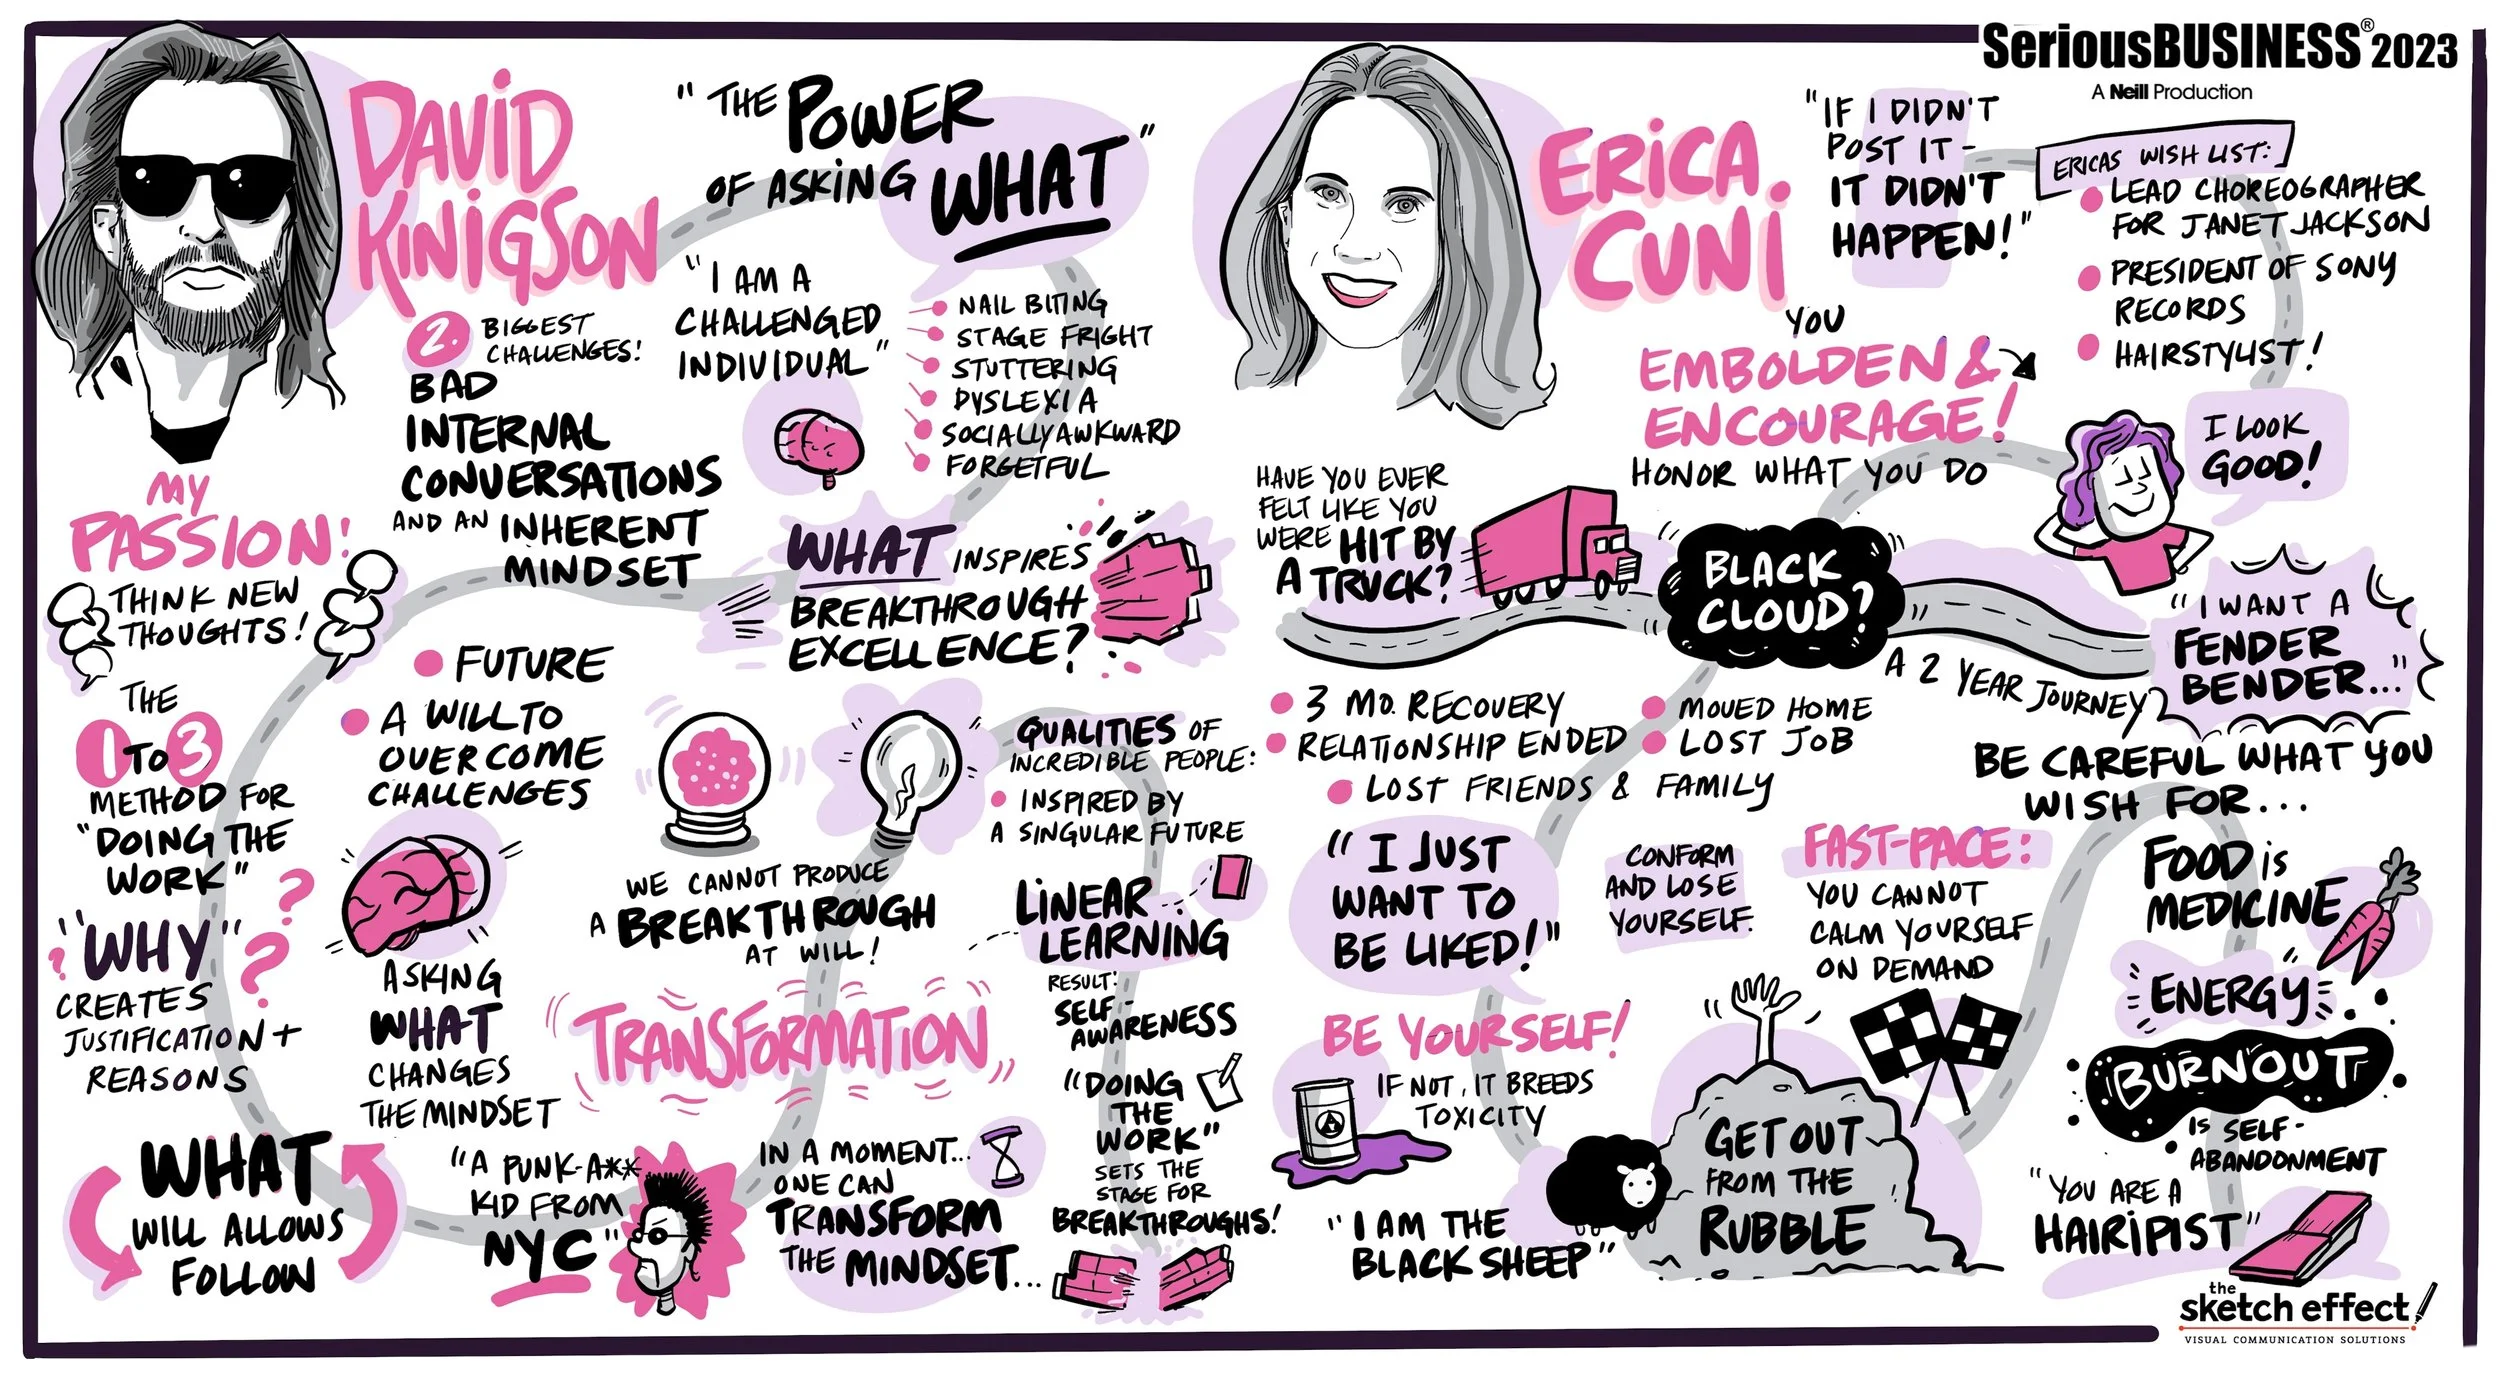 SeriousBUSINESS® 2023
A Neill Production
DAVID
KINIGSON
"THE POWER
OF ASKING WHAT"
2. BIGGEST
CHALLENGES!
BAD
INTERNAL
CONVERSATIONS
AND AN INHERENT
MINDSET
"I AM A
CHALLENGED
INDIVIDUAL"
NAIL BITING
STAGE FRIGHT
STUTTERING
DYSLEXIA
SOCIALLY AWKWARD
FORGETFUL
MY
PASSION:
THINK NEW
THOUGHTS!
THE
1 TO 3
METHOD FOR
"DOING THE
WORK"
"WHY"
? ? ?
CREATES
JUSTIFICATION +
REASONS
WHAT
WILL ALLOWS
FOLLOW
WHAT INSPIRES
BREAKTHROUGH
EXCELLENCE?
FUTURE
A WILL TO
OVERCOME
CHALLENGES
ASKING
WHAT
CHANGES
THE MINDSET
"A PUNK-A**
KID FROM
NYC"
WE CANNOT PRODUCE
A BREAKTHROUGH
AT WILL!
TRANSFORMATION
IN A MOMENT...
ONE CAN
TRANSFORM
THE MINDSET...
QUALITIES OF
INCREDIBLE PEOPLE:
INSPIRED BY
A SINGULAR FUTURE
LINEAR
LEARNING
RESULT:
SELF-
AWARENESS
"DOING
THE
WORK"
SETS THE
STAGE FOR
BREAKTHROUGHS!
ERICA
CUNI
"IF I DIDN'T
POST IT -
IT DIDN'T
HAPPEN!"
ERICAS WISH LIST:
LEAD CHOREOGRAPHER
FOR JANET JACKSON
PRESIDENT OF SONY
RECORDS
HAIRSTYLIST!
YOU
EMBOLDEN &
ENCOURAGE!
HONOR WHAT YOU DO
I LOOK
GOOD!
HAVE YOU EVER
FELT LIKE YOU
WERE HIT BY
A TRUCK?
BLACK
CLOUD?
A 2 YEAR JOURNEY
"I WANT A
FENDER
BENDER..."
3 MO. RECOVERY
RELATIONSHIP ENDED
MOVED HOME
LOST JOB
LOST FRIENDS & FAMILY
BE CAREFUL WHAT YOU
WISH FOR...
"I JUST
WANT TO
BE LIKED!"
CONFORM
AND LOSE
YOURSELF.
FAST-PACE:
YOU CANNOT
CALM YOURSELF
ON DEMAND
BE YOURSELF!
IF NOT, IT BREEDS
TOXICITY
"I AM THE
BLACK SHEEP"
GET OUT
FROM THE
RUBBLE
FOOD is
MEDICINE
ENERGY
BURNOUT
IS SELF-
ABANDONMENT
"YOU ARE A
HAIRiPIST"
the
sketch effect
VISUAL COMMUNICATION SOLUTIONS